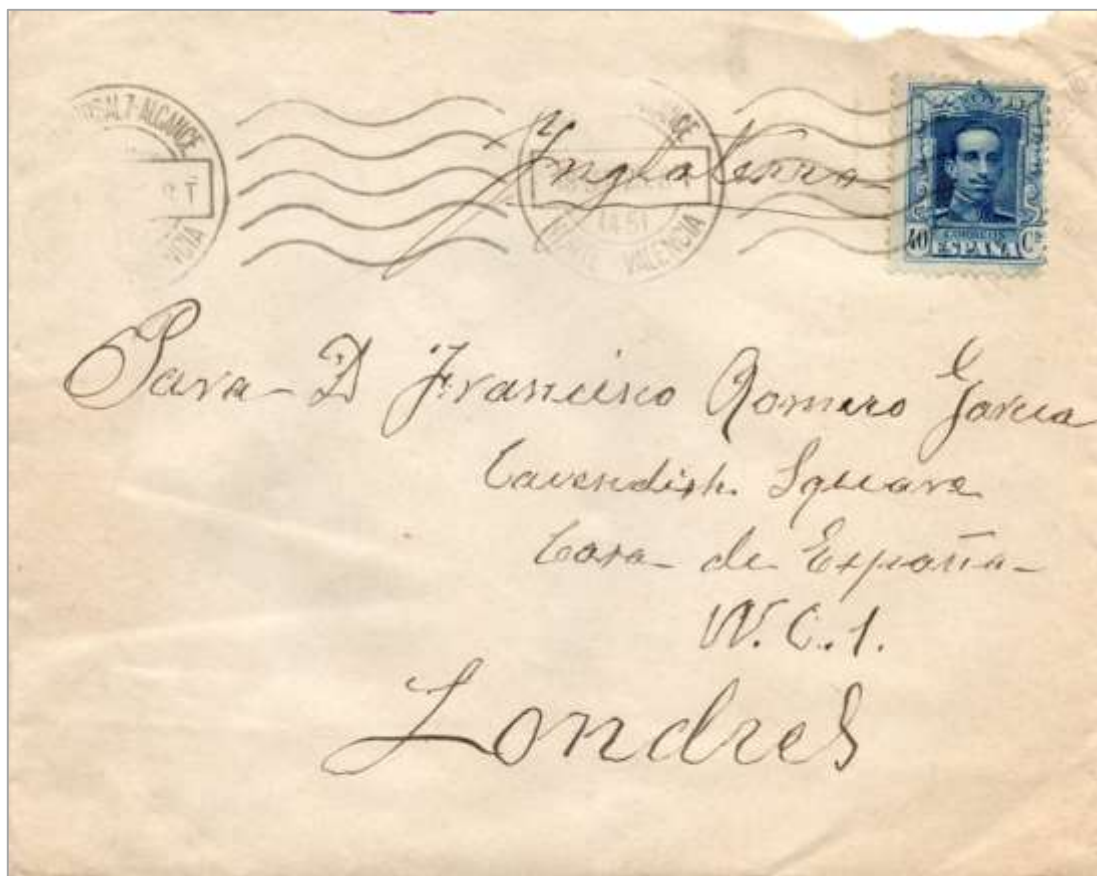 ALCANCE
VALENCIA
Inglaterra
CORREOS
40 ESPAÑA Cs
Para D Francisco Romero Garcia
Cavendish. Square
Casa de España
W.C.1.
Londres